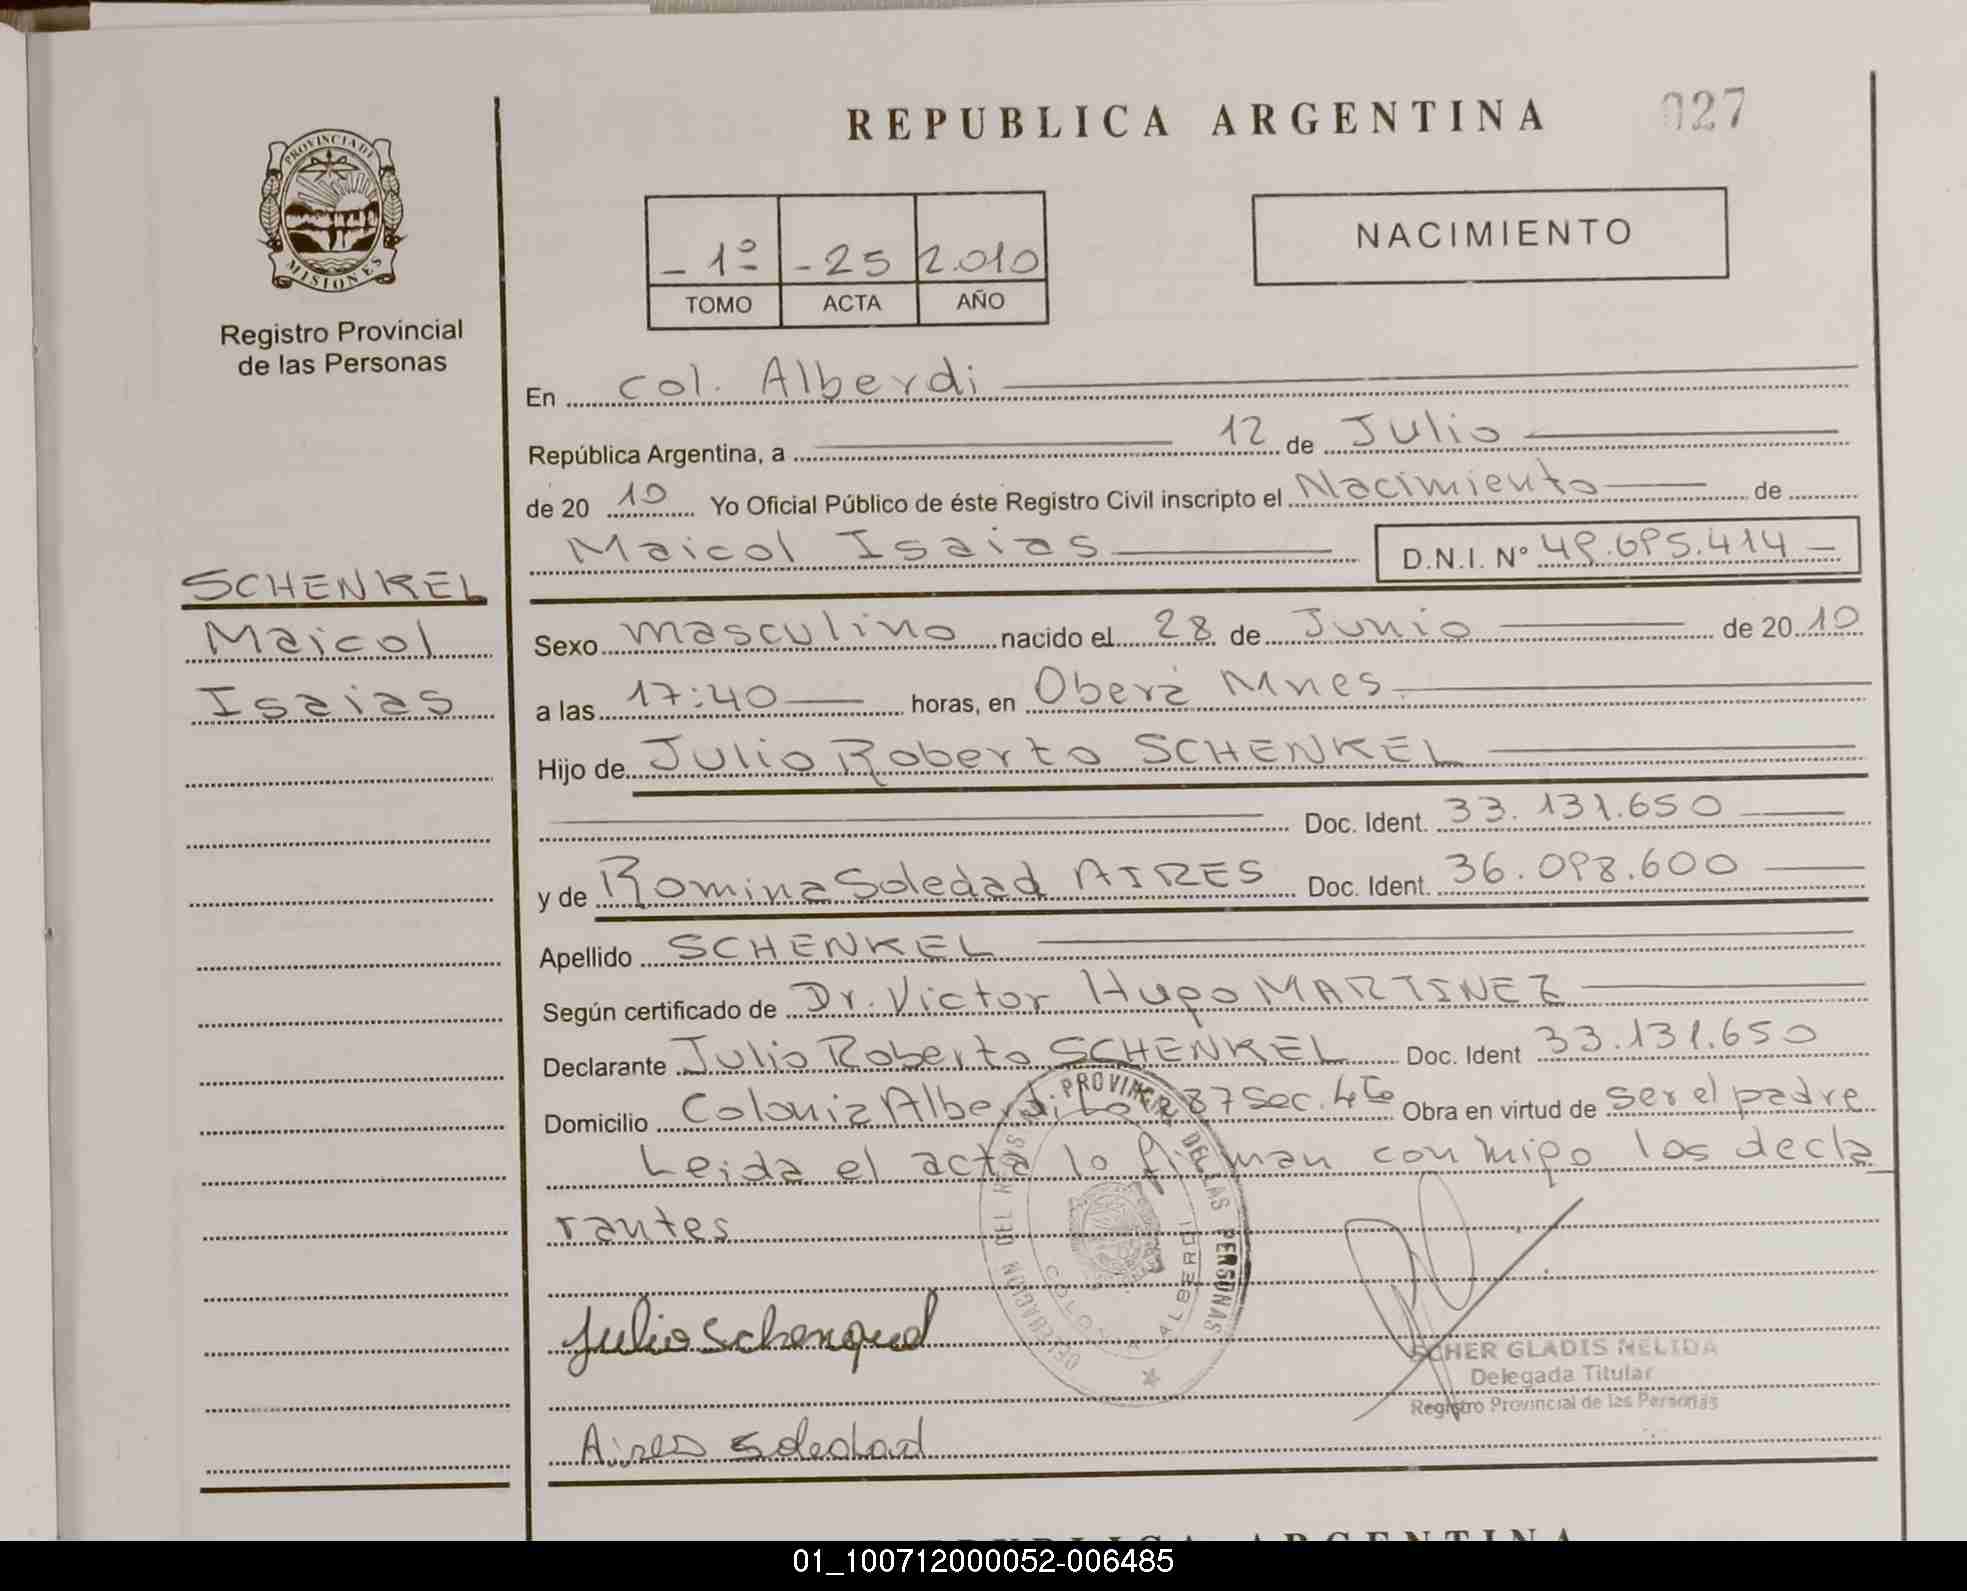 REPUBLICA ARGENTINA
027
PROVINCIA DE
MISIONES
Registro Provincial
de las Personas
- 1º -25 2.010
TOMO ACTA AÑO
NACIMIENTO
En Col. Alberdi
República Argentina, a 12 de Julio
de 20 10 Yo Oficial Público de éste Registro Civil inscripto el Nacimiento de
Maicol Isaias D.N.I. Nº 49.695.414
SCHENKEL
Maicol
Isaias
Sexo masculino nacido el 28 de Junio de 20 10
a las 17:40 horas, en Oberá Mnes
Hijo de Julio Roberto SCHENKEL
Doc. Ident. 33.131.650
y de Romina Soledad AIRES Doc. Ident. 36.098.600
Apellido SCHENKEL
Según certificado de Dr. Victor Hugo MARTINEZ
Declarante Julio Roberto SCHENKEL Doc. Ident 33.131.650
Domicilio Colonia Alberdi Lote 87 Sec. 4ta Obra en virtud de ser el padre
Leida el acta lo firman conmigo los decla
rantes
DELEGACION DEL REGISTRO PROVINCIAL DE LAS PERSONAS
COLONIA ALBERDI
Julio Schenquel
GLADIS NELIDA
Delegada Titular
Registro Provincial de las Personas
Aires Soledad
REPUBLICA ARGENTINA
01_100712000052-006485